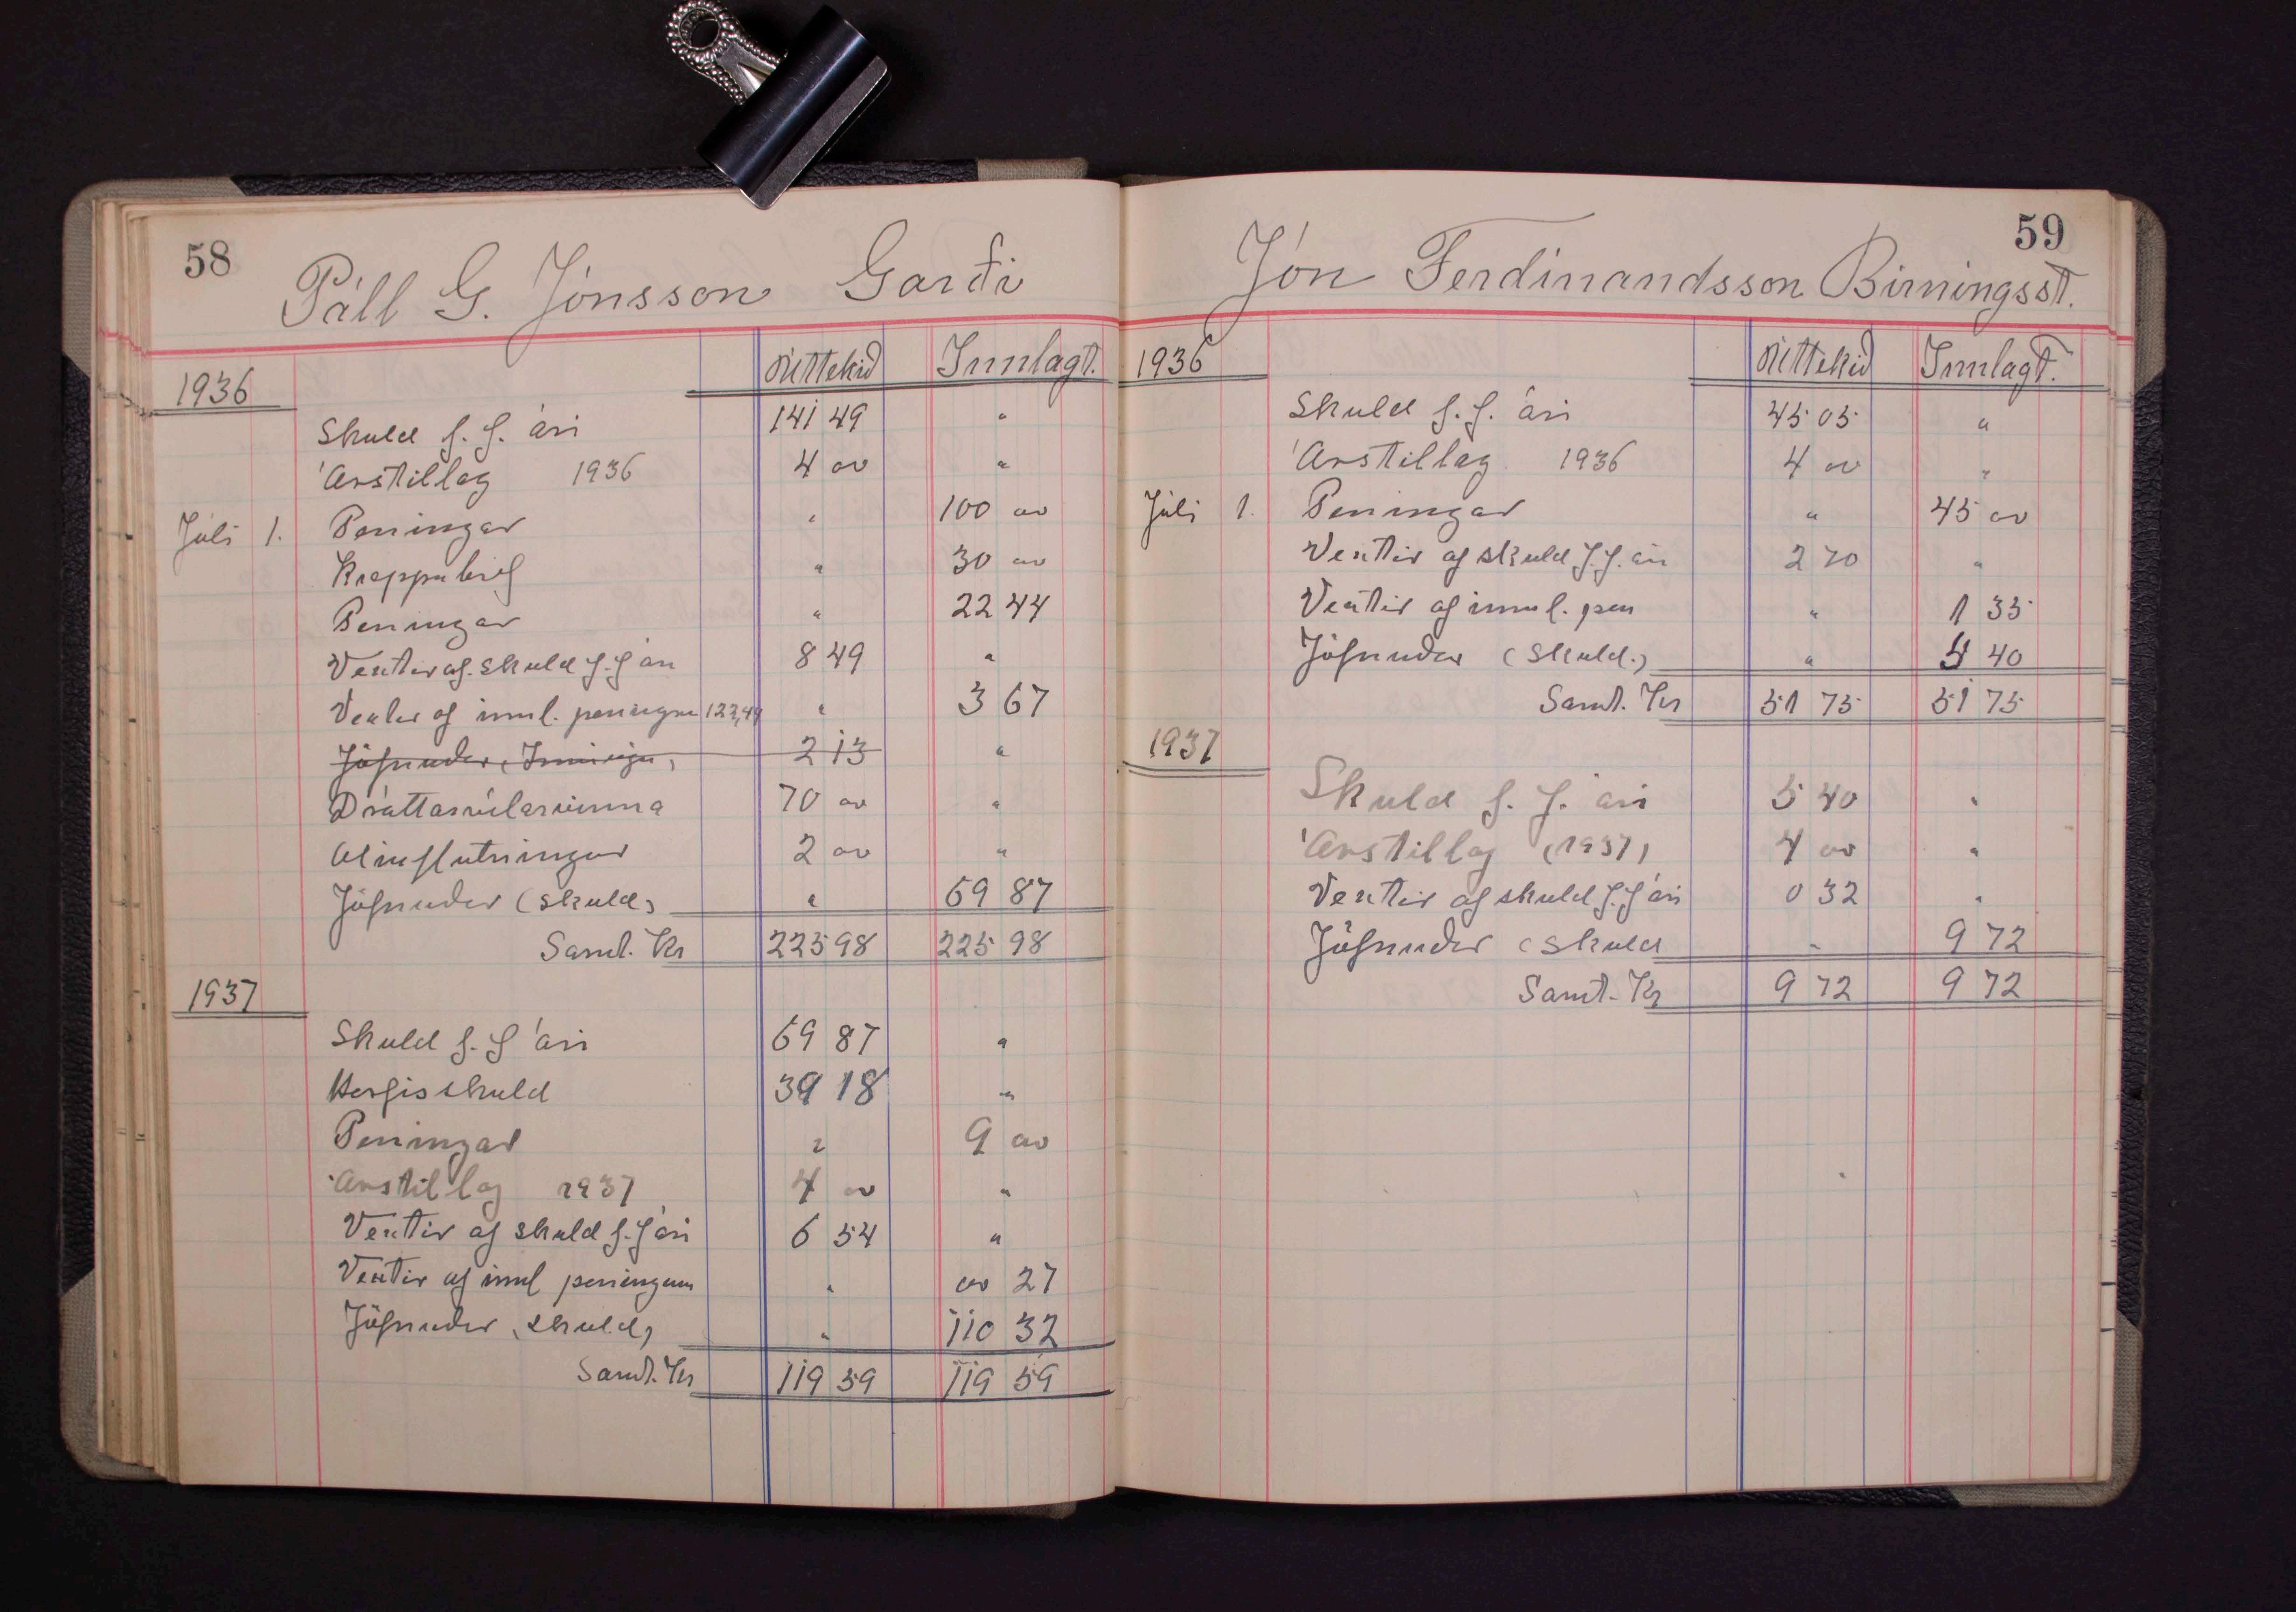 58
Páll G. Jónsson Garði
Úttekið Innlagt.
1936
Skuld f. f. ári 141 49 "
Árstillag 1936 4 00 "
Júlí 1. Peningar " 100 00
Kreppubréf " 30 00
Peningar " 22 44
Vextir af skuld f. f ári 8 49 "
Vextir af innl. peningum 122,44 " 3 67
Jöfnuður (Inneign) 2 13 "
Dráttarvélarvinna 70 00 "
Olíuflutningur 2 00 "
Jöfnuður (skuld) " 69 87
Samt. Kr 225 98 225 98
1937
Skuld f. f ári 69 87 "
Herfisskuld 39 18 "
Peningar " 9 00
Árstillag 1937 4 00 "
Vextir af skuld f. f ári 6 54 "
Vextir af innl peningum " 00 27
Jöfnuður (skuld) " 110 32
Samt. Kr 119 59 119 59
59
Jón Ferdinandsson Birningsst.
1936 Úttekið Innlagt.
Skuld f. f. ári 45 05 "
Árstillag 1936 4 00 "
Júlí 1. Peningar " 45 00
Vextir af skuld f. f. ári 2 70 "
Vextir af innl. pen " 1 35
Jöfnuður (Skuld.) " 5 40
Samt. Kr 51 75 51 75
1937
Skuld f. f. ári 5 40 "
Árstillag (1937) 4 00 "
Vextir af skuld f. f ári 0 32 "
Jöfnuður (Skuld " 9 72
Samt. Kr 9 72 9 72